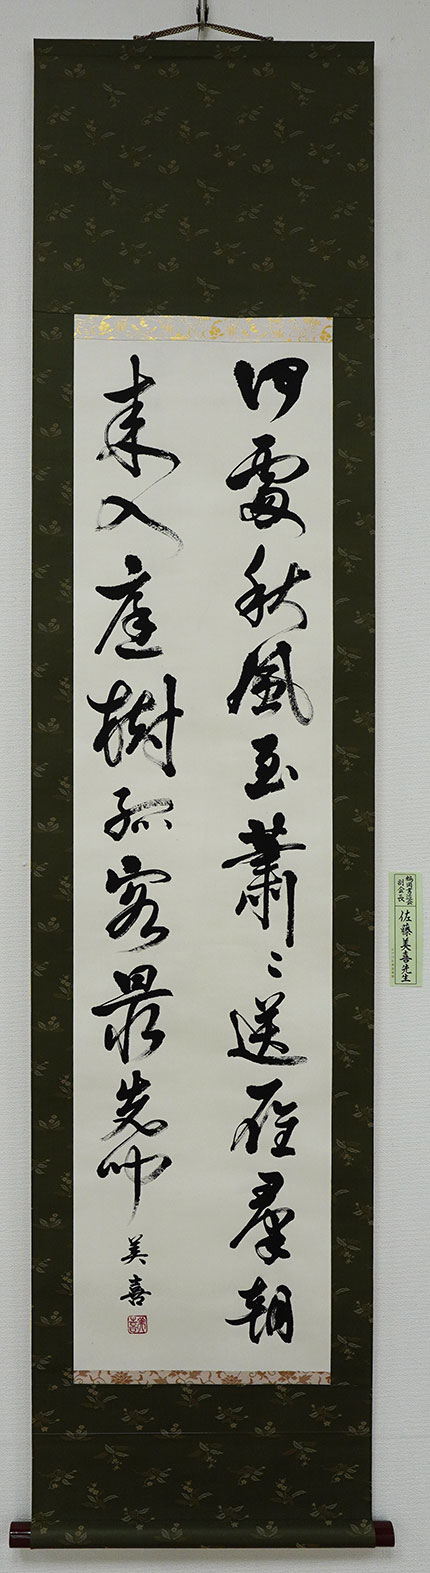 何處秋風至蕭〻送雁羣朝
来入庭樹孤客最先聞
美喜
副会長
佐藤美喜先生